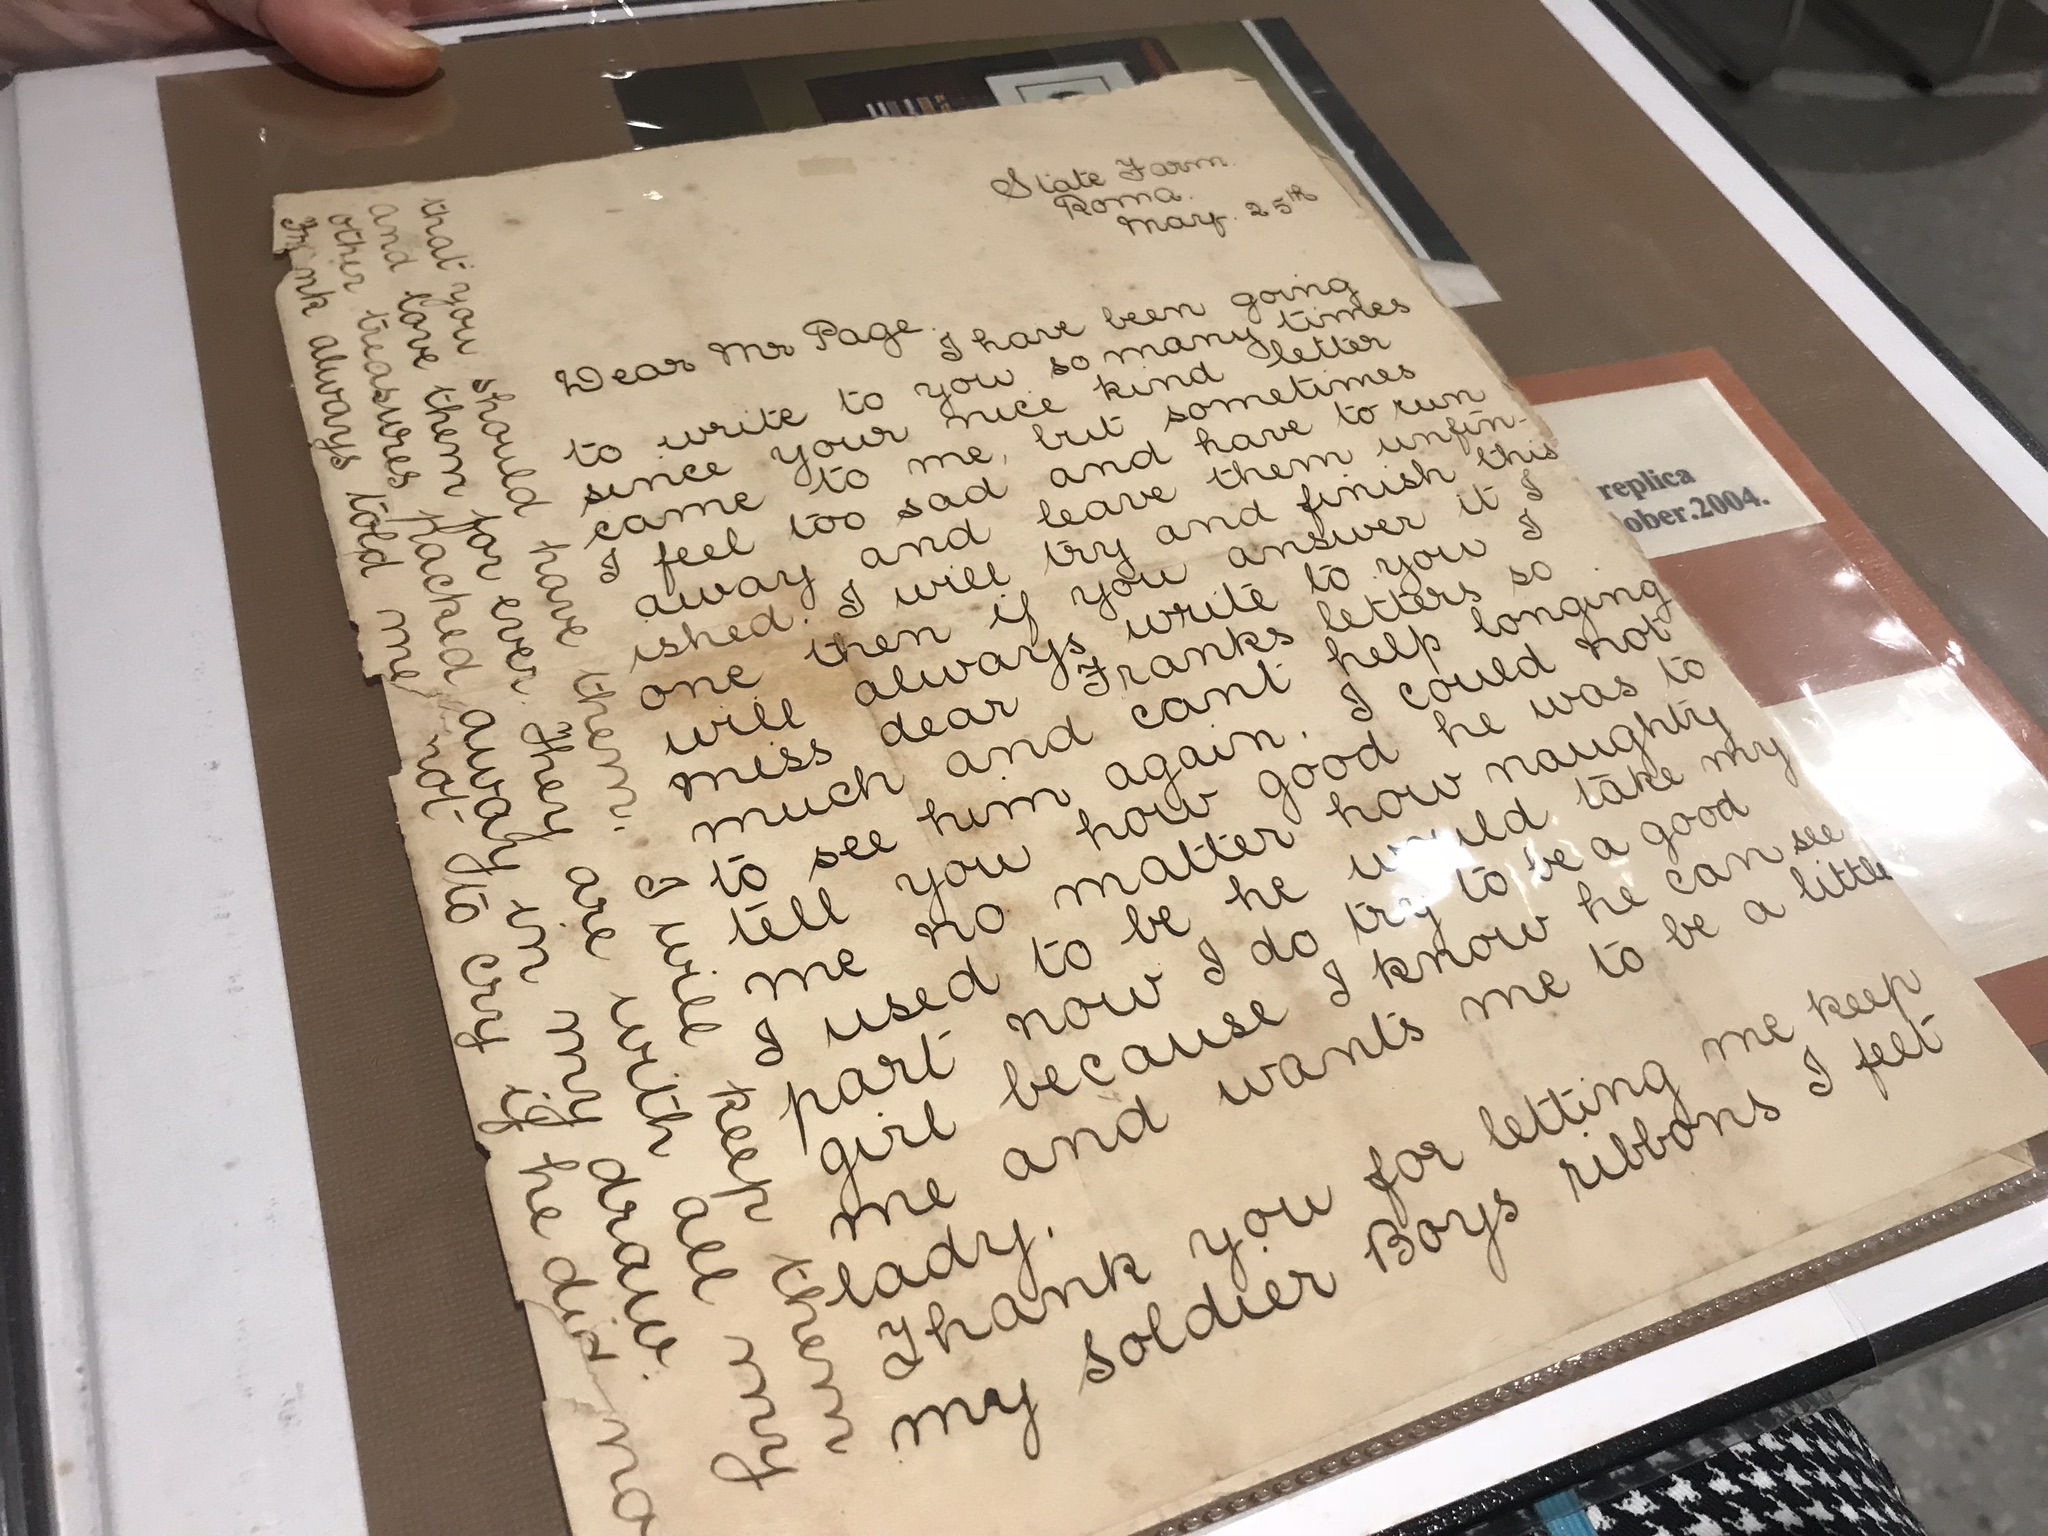 State Farm.
Roma.
May. 25th
Dear Mr Page.
I have been going
to write to you so many times
since your nice kind letter
came to me, but sometimes
I feel too sad and have to run
away and leave them unfin-
ished. I will try and finish this
one then if you answer it I
will always write to you I
miss dear Franks letters so
much and cant help longing
to see him again. I could not
tell you how good he was to
me no matter how naughty
I used to be he would take my
part now I do try to be a good
girl because I know he can see
me and wants me to be a little
lady.
Thank you for letting me keep
my soldier Boys ribbons I felt
that you should have them. I will keep them
and love them for ever. They are with all my
other treasures packed away in my draw.
Frank always told me not to cry if he did no
replica
ober.2004.